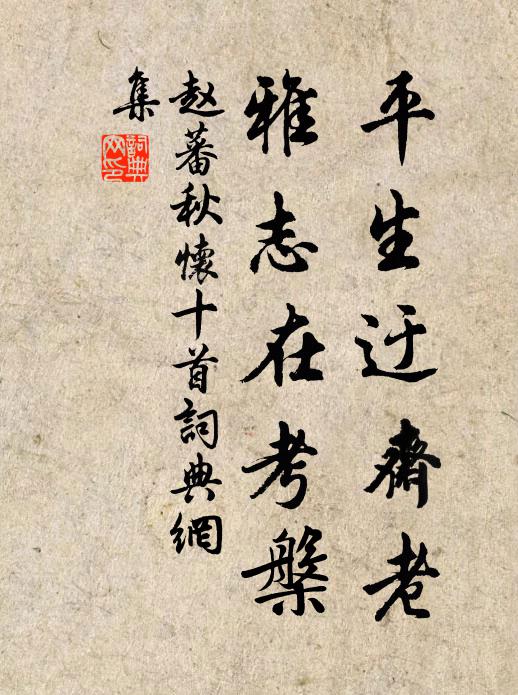 平生迂齋老
雅志在考槃
赵蕃秋懷十首詞典網
集
詞典
网印